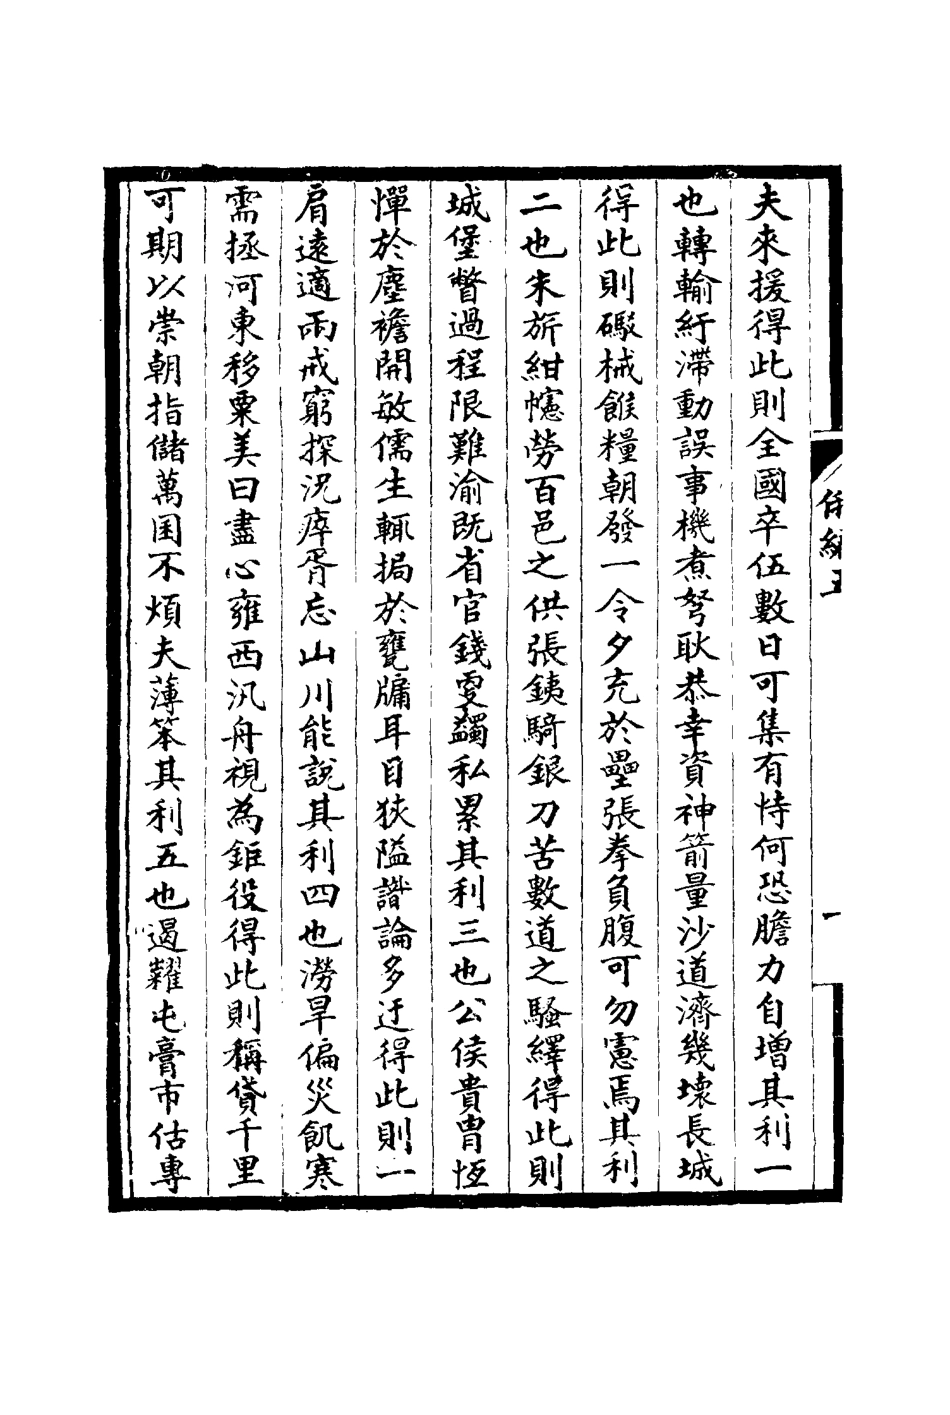 夫來援得此則全國卒伍數日可集有恃何恐膽力自增其利一
也轉輸紆滯動誤事機煮弩耿恭幸資神箭量沙道濟幾壞長城
得此則礮械餱糧朝發一令夕充於壘張拳負腹可勿憲焉其利
二也朱旂紺幰勞百邑之供張銕騎銀刀苦數道之騷繹得此則
城堡瞥過程限難渝既省官錢更蠲私累其利三也公侯貴胄恆
憚於塵襜開敏儒生輒挶於甕牖耳目狹隘識論多迂得此則一
肩遠適兩戒窮探況瘁胥忘山川能說其利四也澇旱偏災飢寒
需拯河東移粟美曰盡心雍西汎舟視為鉅役得此則稱貸千里
可期以崇朝指儲萬囷不煩夫薄笨其利五也遏糶屯膏市估專